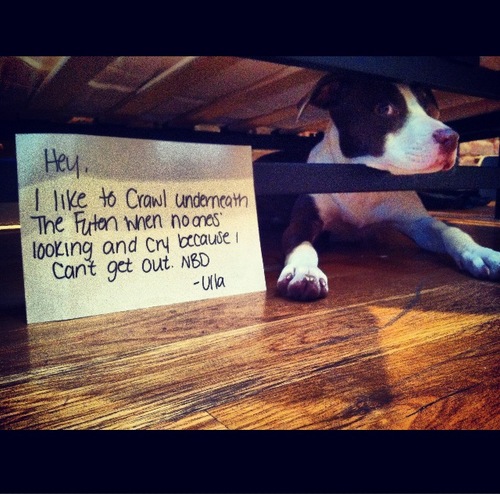 Hey,
I like to Crawl underneath
The Futon when no ones'
looking and Cry because I
Can't get out. NBD
-Ulla